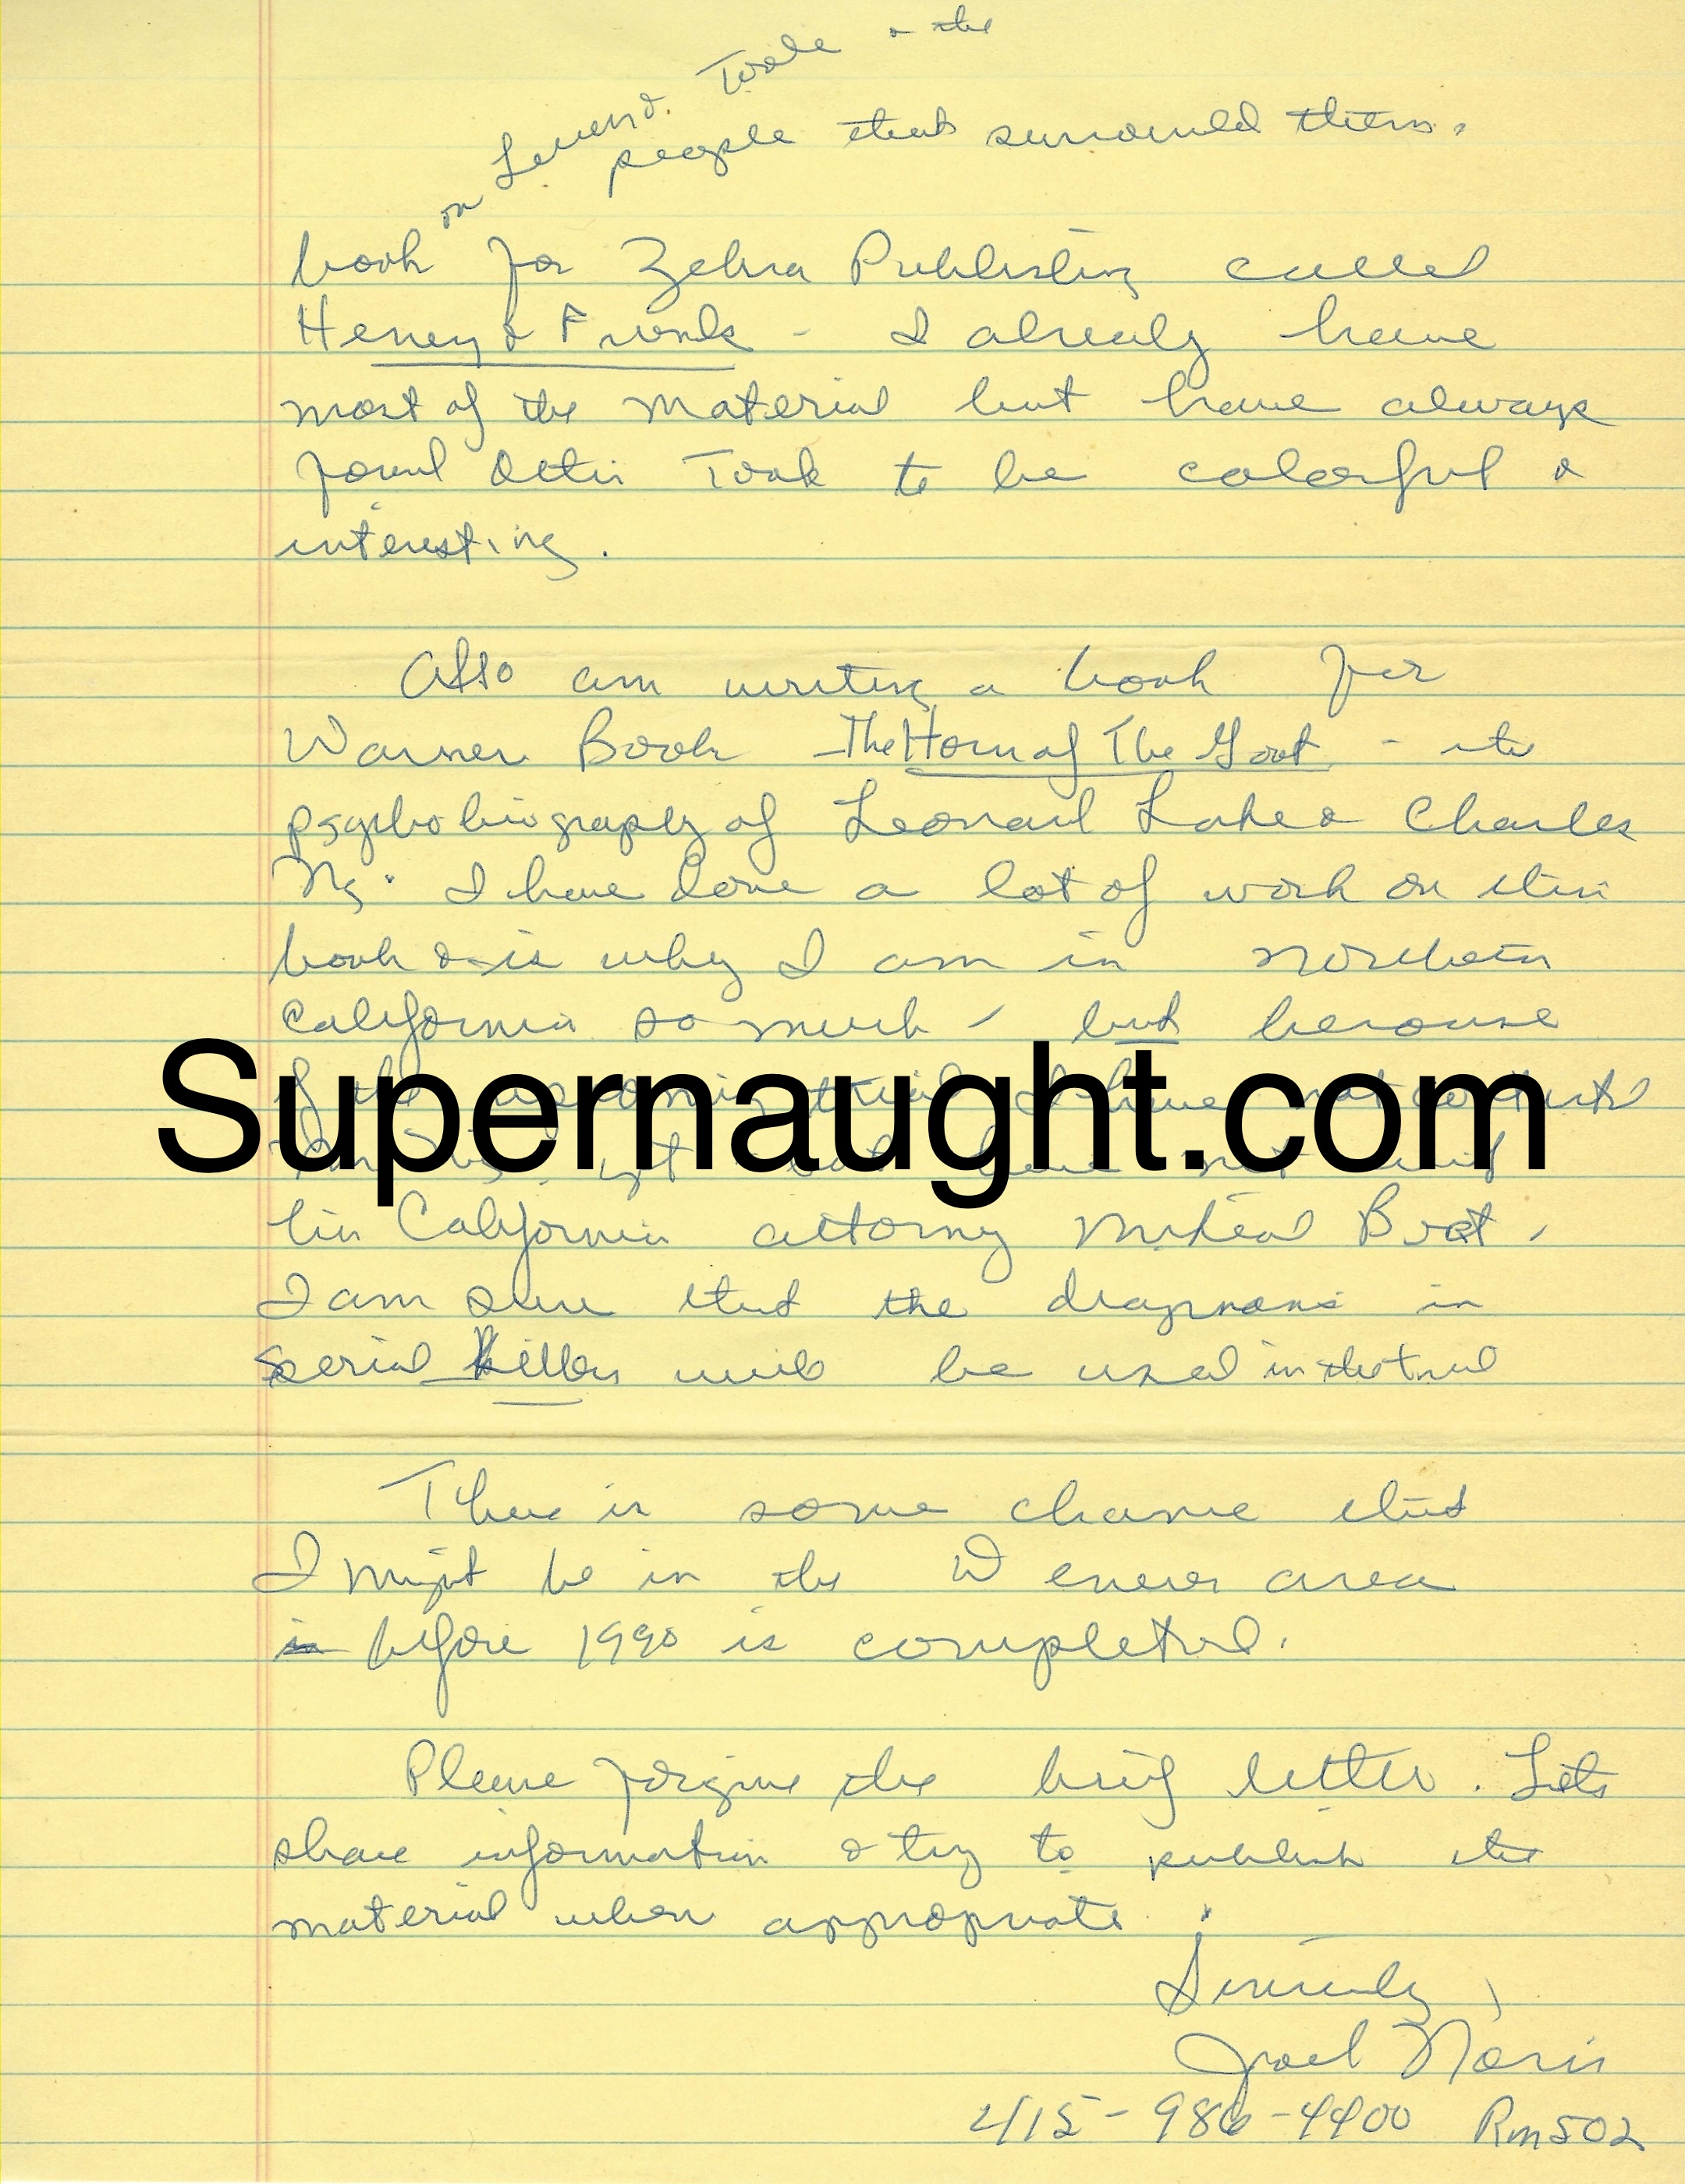 on Lucas & Toole & the
people that surround them.
book for Zebra Publishing called
Henry & Friends - I already have
most of the material but have always
found Ottis Toole to be colorful &
interesting.
Also am writing a book for
Warner Book The Horn of The Goat - its
psychobiography of Leonard Lake & Charles
Ng. I have done a lot of work on this
book & is why I am in northern
California so much - but because
of the upcoming trial I have not contacted
yet have not
his California attorney Michael
I am sure that the diagnosis in
Serial Killers will be used in the trial
There is some chance that
I might be in the Denver area
in before 1990 is completed.
Please forgive the brief letter. Lets
share information & try to publish the
material when appropriate.
Sincerely,
Joel Norris
415-986-4400 Rm 502
Supernaught.com